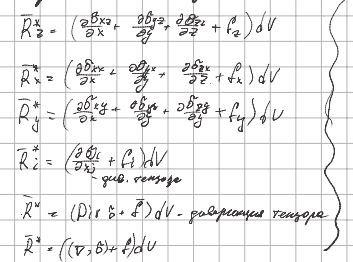 R̄*_z = (∂σxz/∂x + ∂σyz/∂y + ∂σzz/∂z + f_z) dV
R̄*_x = (∂σxx/∂x + ∂σyx/∂y + ∂σzx/∂z + f_x) dV
R̄*_y = (∂σxy/∂x + ∂σyy/∂y + ∂σzy/∂z + f_y) dV
R̄*_i = (∂σji/∂xj + f_i) dV
- див. тензора
R̄* = (Div σ + f̄) dV - дивергенция тензора
R̄* = ((∇, σ) + f̄) dV